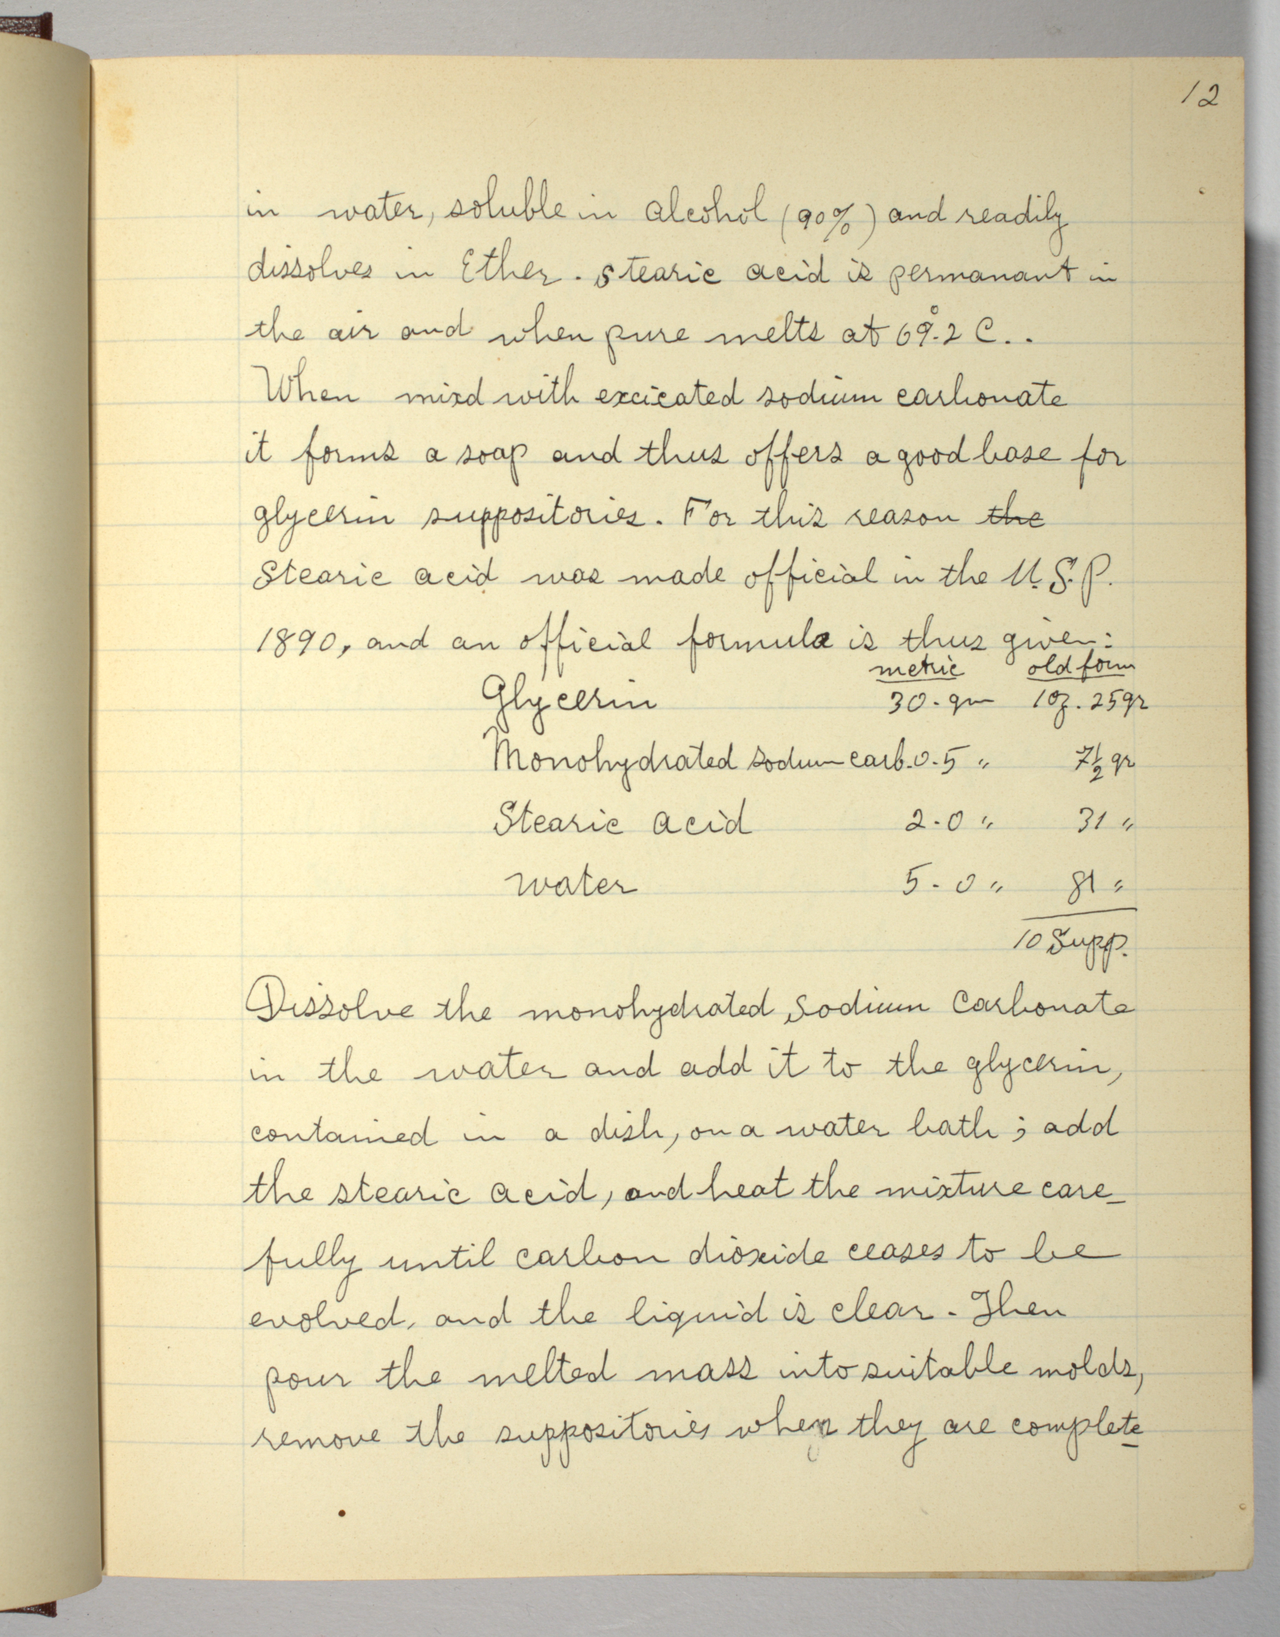 12
in water, soluble in alcohol (90%) and readily
dissolves in Ether. Stearic acid is permanant in
the air and when pure melts at 69°.2 C..
When mixd with excicated sodium carbonate
it forms a soap and thus offers a good base for
glycerin suppositories. For this reason the
Stearic acid was made official in the U.S.P.
1890, and an official formula is thus given:
metric old form
Glycerin 30.gm 1oz. 25gr
Monohydrated sodium carb. 0.5 " 7½ gr
Stearic acid 2.0 " 31 "
water 5.0 " 81 "
10 Supp.
Dissolve the monohydrated Sodium Carbonate
in the water and add it to the glycerin,
contained in a dish, on a water bath; add
the stearic acid, and heat the mixture care-
fully until carbon dioxide ceases to be
evolved, and the liquid is clear. Then
pour the melted mass into suitable molds,
remove the suppositories when they are complete